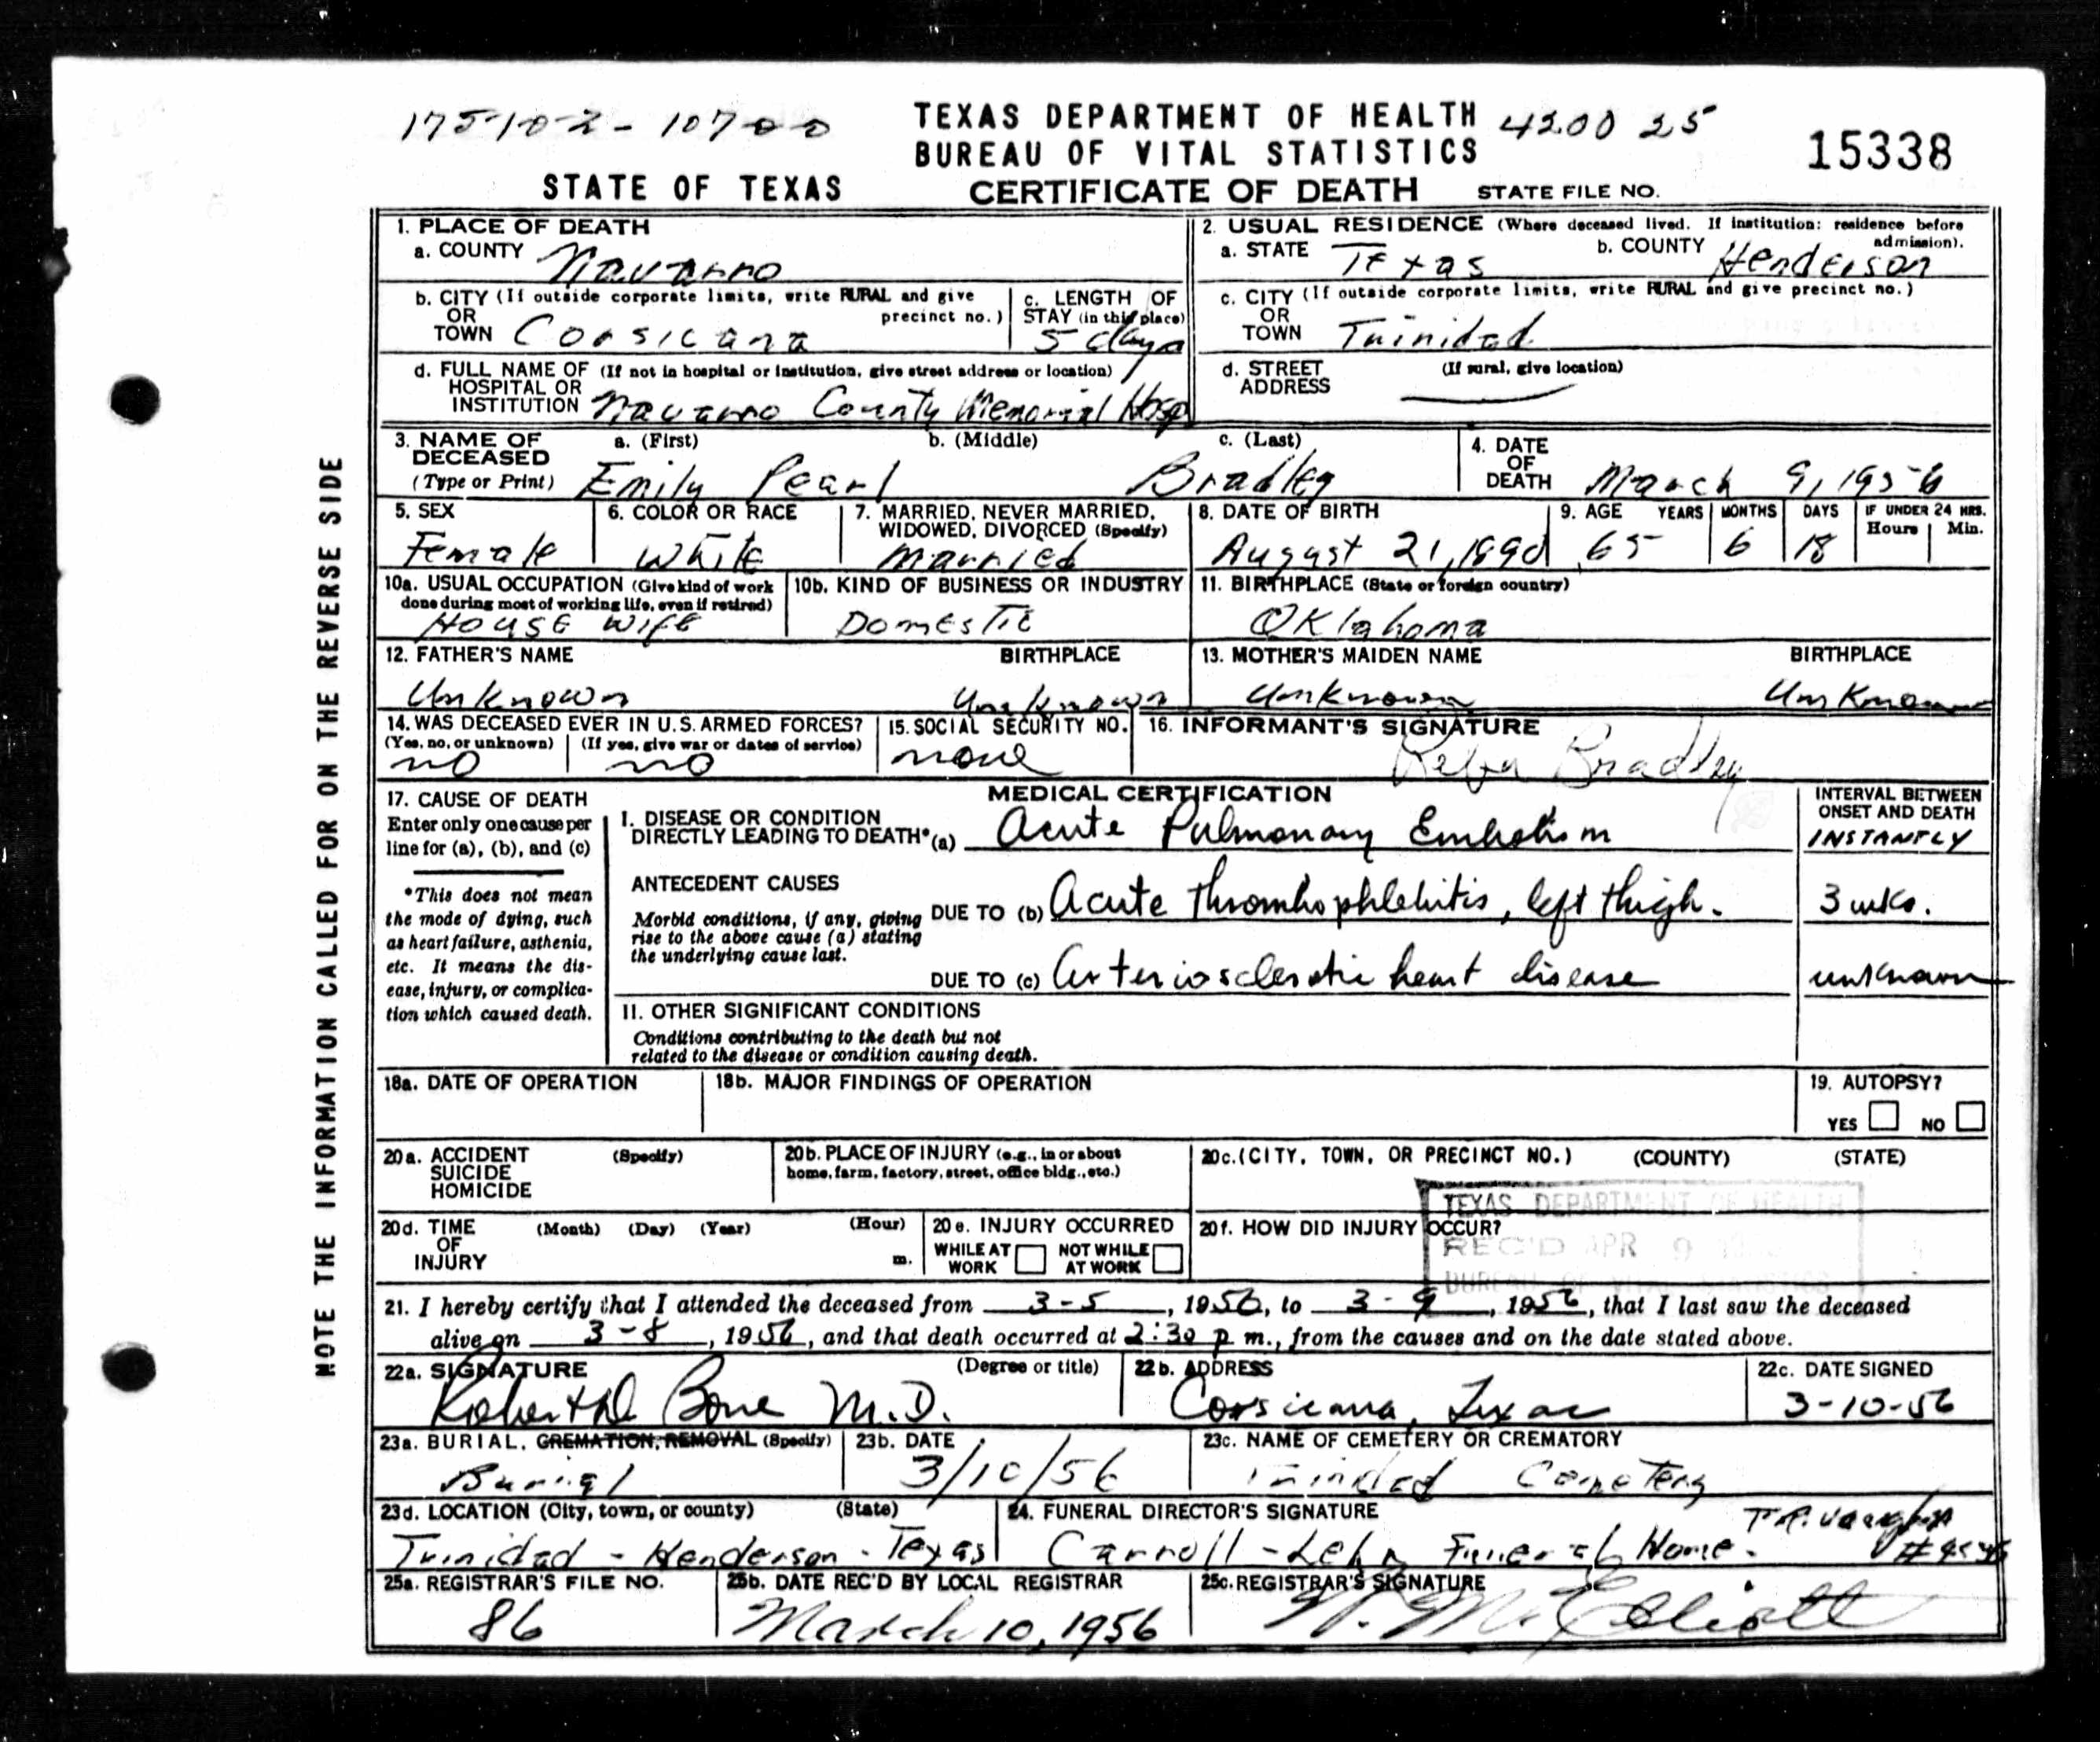 175102-10700
TEXAS DEPARTMENT OF HEALTH 4200 25
BUREAU OF VITAL STATISTICS 15338
STATE OF TEXAS CERTIFICATE OF DEATH STATE FILE NO.
NOTE THE INFORMATION CALLED FOR ON THE REVERSE SIDE
1. PLACE OF DEATH
a. COUNTY Navarro
2. USUAL RESIDENCE (Where deceased lived. If institution: residence before admission).
a. STATE Texas b. COUNTY Henderson
b. CITY (If outside corporate limits, write RURAL and give precinct no.)
OR
TOWN Corsicana
c. LENGTH OF
STAY (in this place)
5 days
c. CITY (If outside corporate limits, write RURAL and give precinct no.)
OR
TOWN Trinidad
d. FULL NAME OF (If not in hospital or institution, give street address or location)
HOSPITAL OR
INSTITUTION Navarro County Memorial Hosp
d. STREET (If rural, give location)
ADDRESS
3. NAME OF a. (First) b. (Middle) c. (Last)
DECEASED
(Type or Print) Emily Pearl Bradley
4. DATE
OF
DEATH March 9, 1956
5. SEX
Female
6. COLOR OR RACE
White
7. MARRIED, NEVER MARRIED,
WIDOWED, DIVORCED (Specify)
Married
8. DATE OF BIRTH
August 21, 1890
9. AGE YEARS MONTHS DAYS IF UNDER 24 HRS.
Hours Min.
65 6 18
10a. USUAL OCCUPATION (Give kind of work
done during most of working life, even if retired)
House Wife
10b. KIND OF BUSINESS OR INDUSTRY
Domestic
11. BIRTHPLACE (State or foreign country)
Oklahoma
12. FATHER'S NAME BIRTHPLACE
Unknown Unknown
13. MOTHER'S MAIDEN NAME BIRTHPLACE
Unknown Unknown
14. WAS DECEASED EVER IN U.S. ARMED FORCES?
(Yes, no, or unknown) (If yes, give war or dates of service)
no no
15. SOCIAL SECURITY NO.
none
16. INFORMANT'S SIGNATURE
Reba Bradley
17. CAUSE OF DEATH
Enter only one cause per
line for (a), (b), and (c)
*This does not mean
the mode of dying, such
as heart failure, asthenia,
etc. It means the dis-
ease, injury, or complica-
tion which caused death.
MEDICAL CERTIFICATION
INTERVAL BETWEEN
ONSET AND DEATH
I. DISEASE OR CONDITION
DIRECTLY LEADING TO DEATH* (a) Acute Pulmonary Embolism INSTANTLY
ANTECEDENT CAUSES
Morbid conditions, if any, giving
rise to the above cause (a) stating
the underlying cause last.
DUE TO (b) Acute thrombophlebitis, left thigh. 3 wks.
DUE TO (c) Arteriosclerotic heart disease unknown
II. OTHER SIGNIFICANT CONDITIONS
Conditions contributing to the death but not
related to the disease or condition causing death.
18a. DATE OF OPERATION
18b. MAJOR FINDINGS OF OPERATION
19. AUTOPSY?
YES NO
20a. ACCIDENT (Specify)
SUICIDE
HOMICIDE
20b. PLACE OF INJURY (e.g., in or about
home, farm, factory, street, office bldg., etc.)
20c. (CITY, TOWN, OR PRECINCT NO.) (COUNTY) (STATE)
20d. TIME (Month) (Day) (Year) (Hour)
OF
INJURY m.
20e. INJURY OCCURRED
WHILE AT WORK NOT WHILE AT WORK
20f. HOW DID INJURY OCCUR?
TEXAS DEPARTMENT OF HEALTH
REC'D APR 9
BUREAU OF VITAL STATISTICS
21. I hereby certify that I attended the deceased from 3-5, 1956, to 3-9, 1956, that I last saw the deceased
alive on 3-8, 1956, and that death occurred at 2:30 p m., from the causes and on the date stated above.
22a. SIGNATURE (Degree or title)
Robert D Bone M.D.
22b. ADDRESS
Corsicana, Texas
22c. DATE SIGNED
3-10-56
23a. BURIAL, CREMATION, REMOVAL (Specify)
Burial
23b. DATE
3/10/56
23c. NAME OF CEMETERY OR CREMATORY
Trinidad Cemetery
23d. LOCATION (City, town, or county) (State)
Trinidad - Henderson - Texas
24. FUNERAL DIRECTOR'S SIGNATURE
Carroll-Lehr Funeral Home.
25a. REGISTRAR'S FILE NO.
86
25b. DATE REC'D BY LOCAL REGISTRAR
March 10, 1956
25c. REGISTRAR'S SIGNATURE